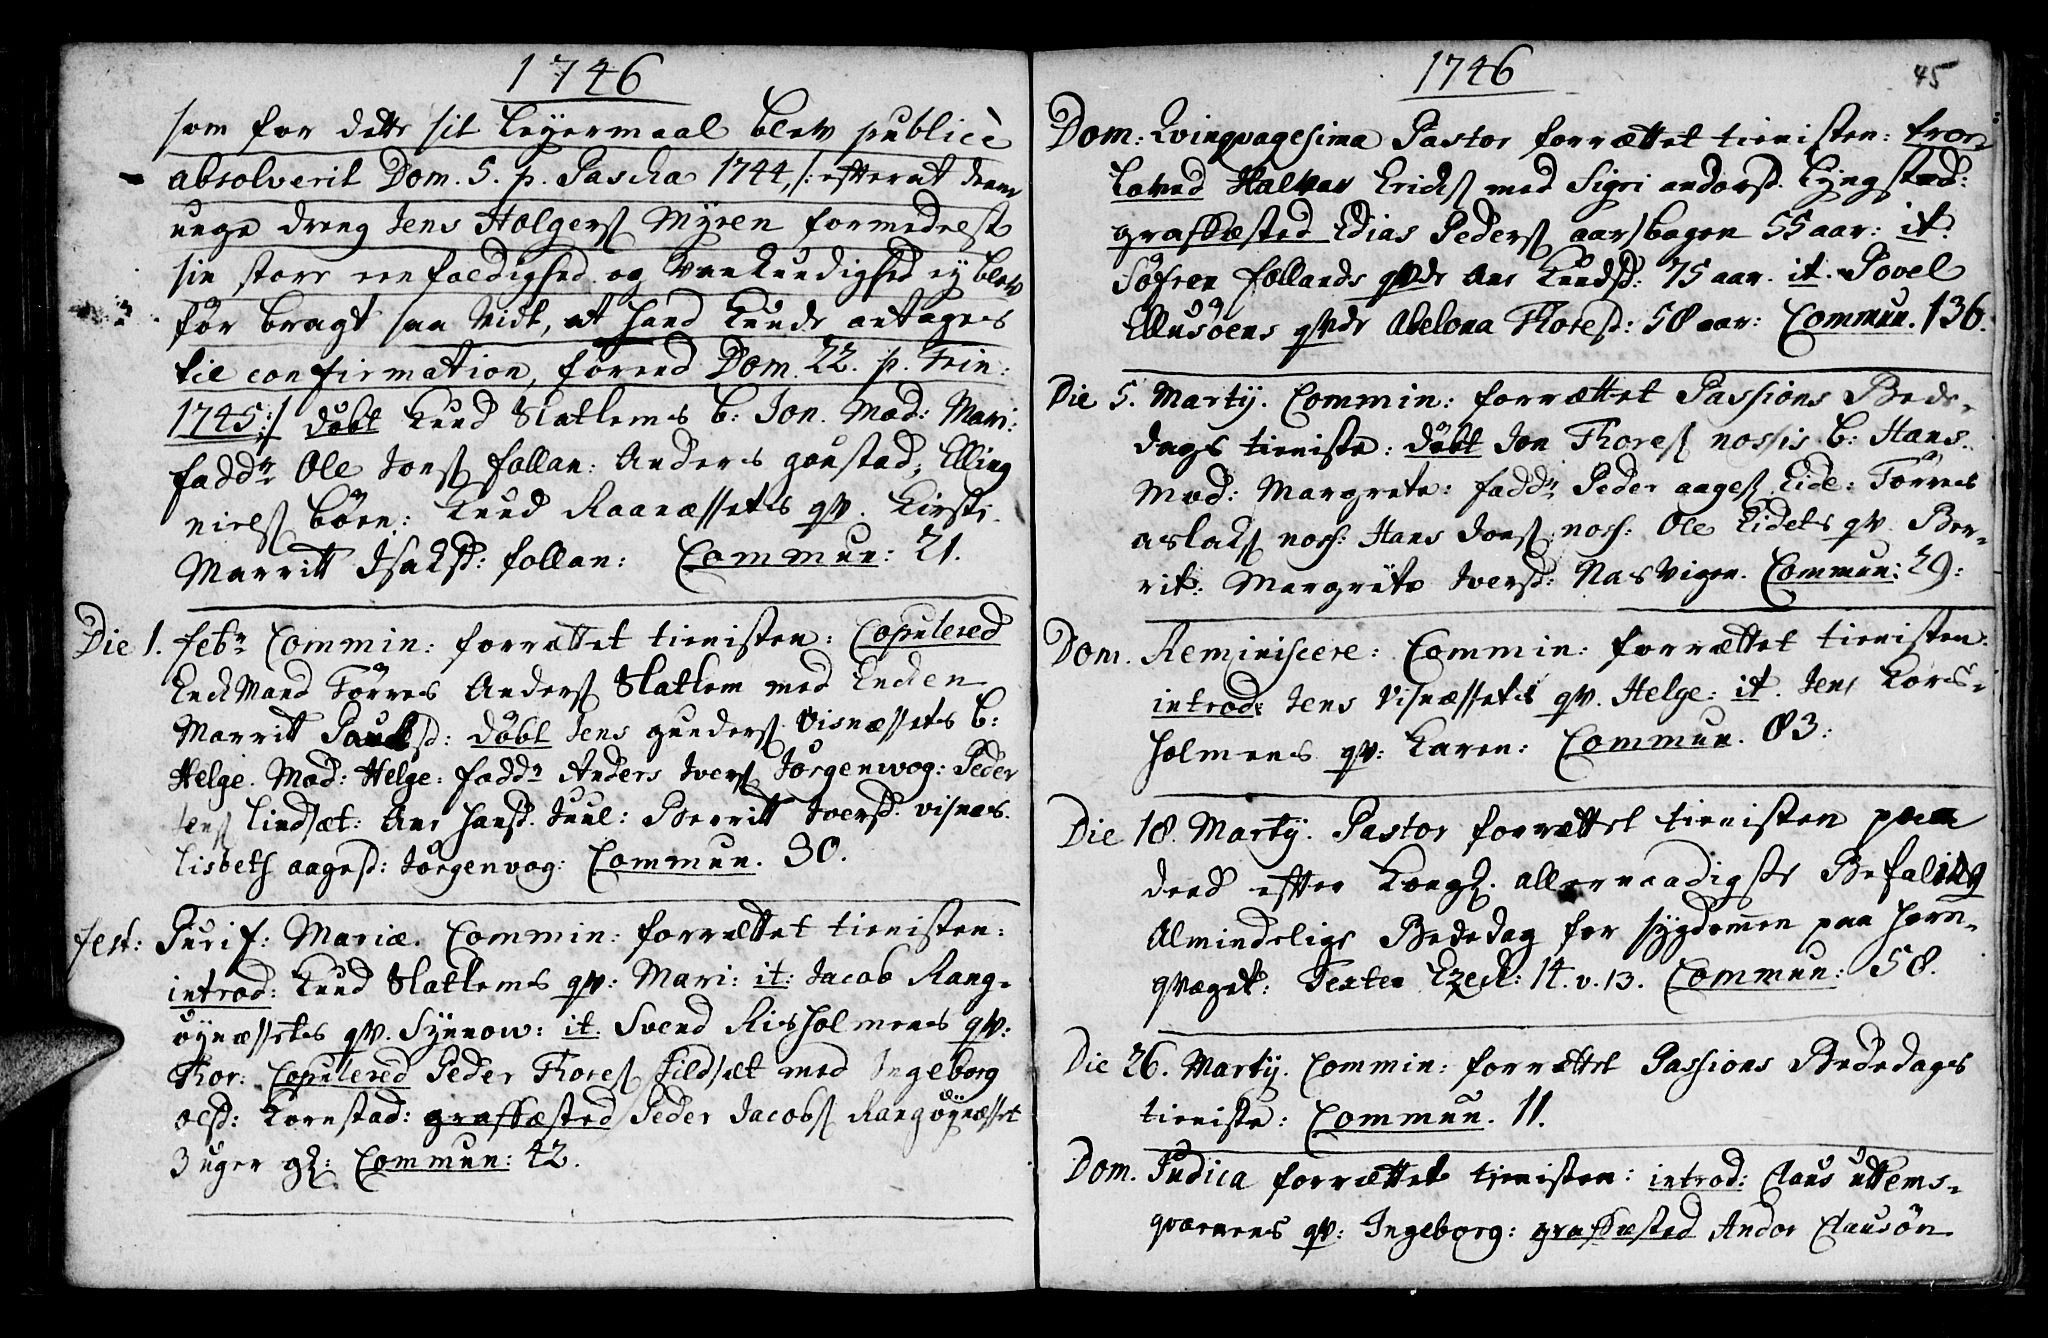 1746
som for dette sit Leyermaal blev publicè
absolverit Dom. 5. p. Pascha 1744, /: efterat denne
unge dreng Jens Holgers Myren formedelst
sin store eenfoldighed og Vankundighed ej blev
før bragt saa vidt, at hand kunde antages
til confirmation, førend Dom. 22. p. Trin:
1745:/ døbt Knud Slatlems b: Jon. Mod: Mari:
fadd: Ole Jons follan: Anders gøustad, Elling
niels børn: Knud Raanæssets qv. Kirsti.
Marritt Isaksd: follan: Commun: 21.
Die 1. febr Commin: forrættet tienisten: Copulered
Enck Mand Törres Anders Slatlem med Encken
Marrit Poulsd: döbt Jens gunders Visnæssets b:
Helge. Mod: Helge: fadd: Anders Ivers Jörgenvog: Peder
Jens Lindsæt: Ane hansd. Juul: Berritt Iversd. visnæs.
Lisbeth aagesd: Jörgenvog: Commun. 30.
fest: Purif: Mariæ. Commin: forrættet tienisten:
introd: Knud Slatlems qv: Mari: it: Jacob Rang-
öynæssets qv. Synnow: it. Svend Risholmens qv:
Thor: Copulered Peder Thores Fildsæt med Ingeborg
olsd: Kornstad: grafkæsted Peder Jacobs Rangöynæsset
3 uger gl: Commun: 42.
1746
45
Dom: Qvinqvagesima Pastor forrættet tienisten: troe-
loved Halvar Ericks med Sigri andorsd. Lyngstad:
grafkæsted Elias Peders aarsbogen 55 aar: it.
Söfren follands qvde Ane Knudsd: 75 aar. it. Povel
Ellusöens qvde Abelona Thoresd: 58 aar: Commun. 136.
Die 5. Martij. Commin: forrættet Passions Bede-
dags tieniste: döbt Jon Thores nossis b: Hans.
Mod: Margrete: fadd: Peder aages Eide: Törres
aslaks noss: Hans Jons noss: Ole Eidets qv. Ber-
rit: Margrete Iversd: Nasvigen. Commun: 29:
Dom. Reminiscere: Commin: forrættet tienisten:
introd: Jens Visnæssets qv. Helge: it. Jens Kors-
holmens qv: Karen: Commun. 83:
Die 18. Martij. Pastor forrættet tienisten paa
dend efter Kongl. allernaadigste Befaling
Almindelige Bededag for sygdommen paa horn-
qvæget: Texten Ezech: 14. v. 13. Commun: 58.
Die 26. Martij. Commin: forrættet Passions Bededags
tieniste: Commun. 11.
Dom. Judica forrættet tienisten: introd: Claus Uttems-
qværnens qv: Ingeborg: grafkæsted Andor Clausön